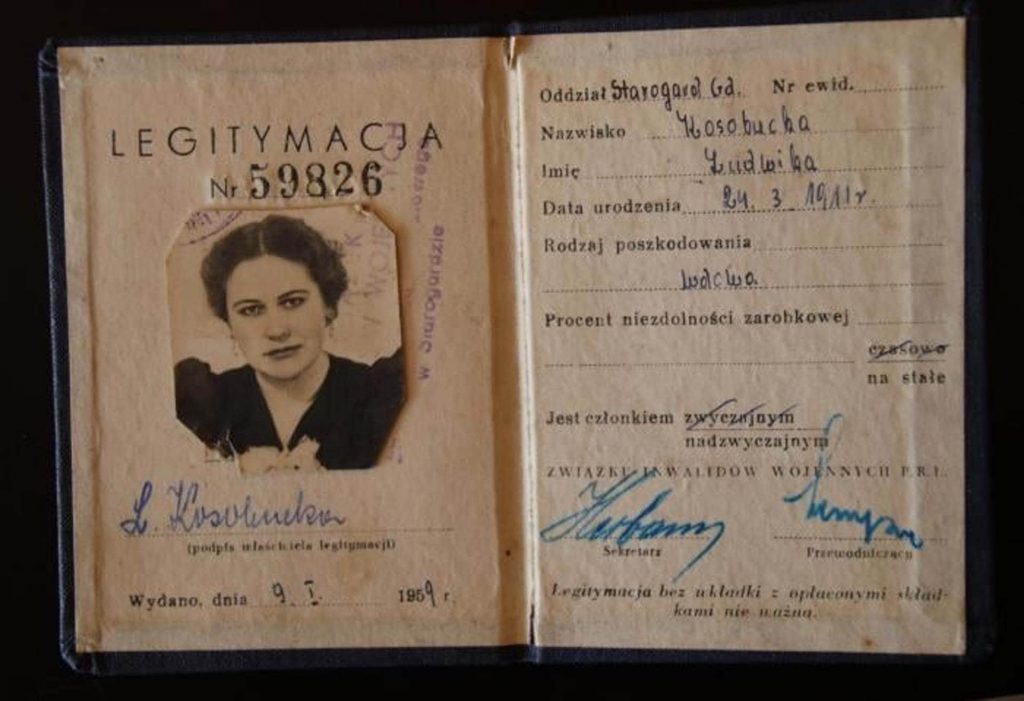 LEGITYMACJA
Nr 59826
w Starogardzie
L. Kosobucka
(podpis właściciela legitymacji)
Wydano, dnia 9. I. 1959 r.
Oddział Starogard Gd. Nr ewid.
Nazwisko Kosobucka
Imię Ludwika
Data urodzenia 24. 3. 1911 r.
Rodzaj poszkodowania
wdowa
Procent niezdolności zarobkowej
czasowo
na stałe
Jest członkiem zwyczajnym
nadzwyczajnym
ZWIĄZKU INWALIDÓW WOJENNYCH P.R.L.
Sekretarz Przewodniczący
Legitymacja bez wkładki z opłaconymi skład-
kami nie ważna.